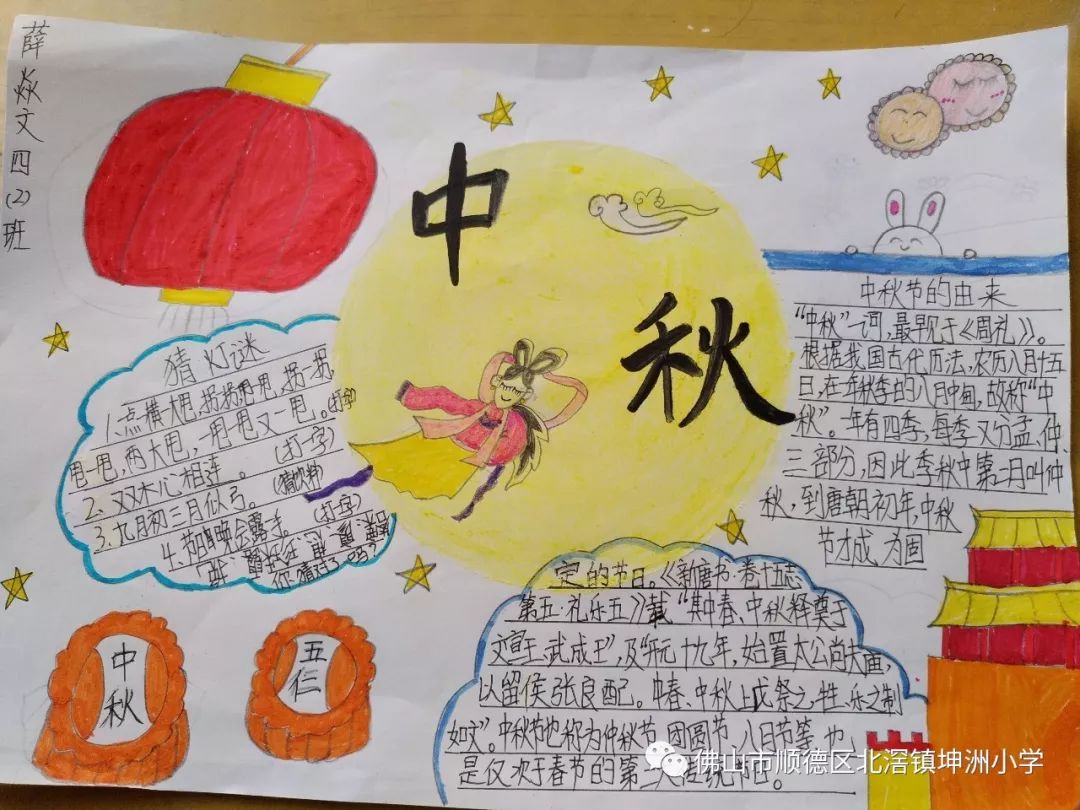 薛焱文四(2)班
中
秋
猜灯谜
1.点横大甩,拐拐甩甩,拐一拐,
甩一甩,两大甩,一甩甩又一甩。(打一字)
2、双木心相连。(打一字)
3、九月初三月似弓。(猜饮料)
4.节日晚会露一手。(打一字)
你猜对了吗?
中秋
五仁
中秋节的由来
“中秋”一词,最早见于《周礼》。
根据我国古代历法,农历八月十五
日,在年秋季的八月中旬,故称“中
秋”。一年有四季,每季又分孟、仲、
三部分,因此季秋中第二月叫仲
秋,到唐朝初年,中秋
节才成为固
定的节日。《新唐书·卷十五志
第五·礼乐五》载“其中春、中秋释奠于
文宣王、武成王”,及“开元十九年,始置太公尚父庙,
以留侯张良配。中春、中秋上戊祭之,牲、乐之制
如文”。中秋节也称为仲秋节、团圆节、八月节等,也
是仅次于春节的第二大传统节日。
佛山市顺德区北滘镇坤洲小学